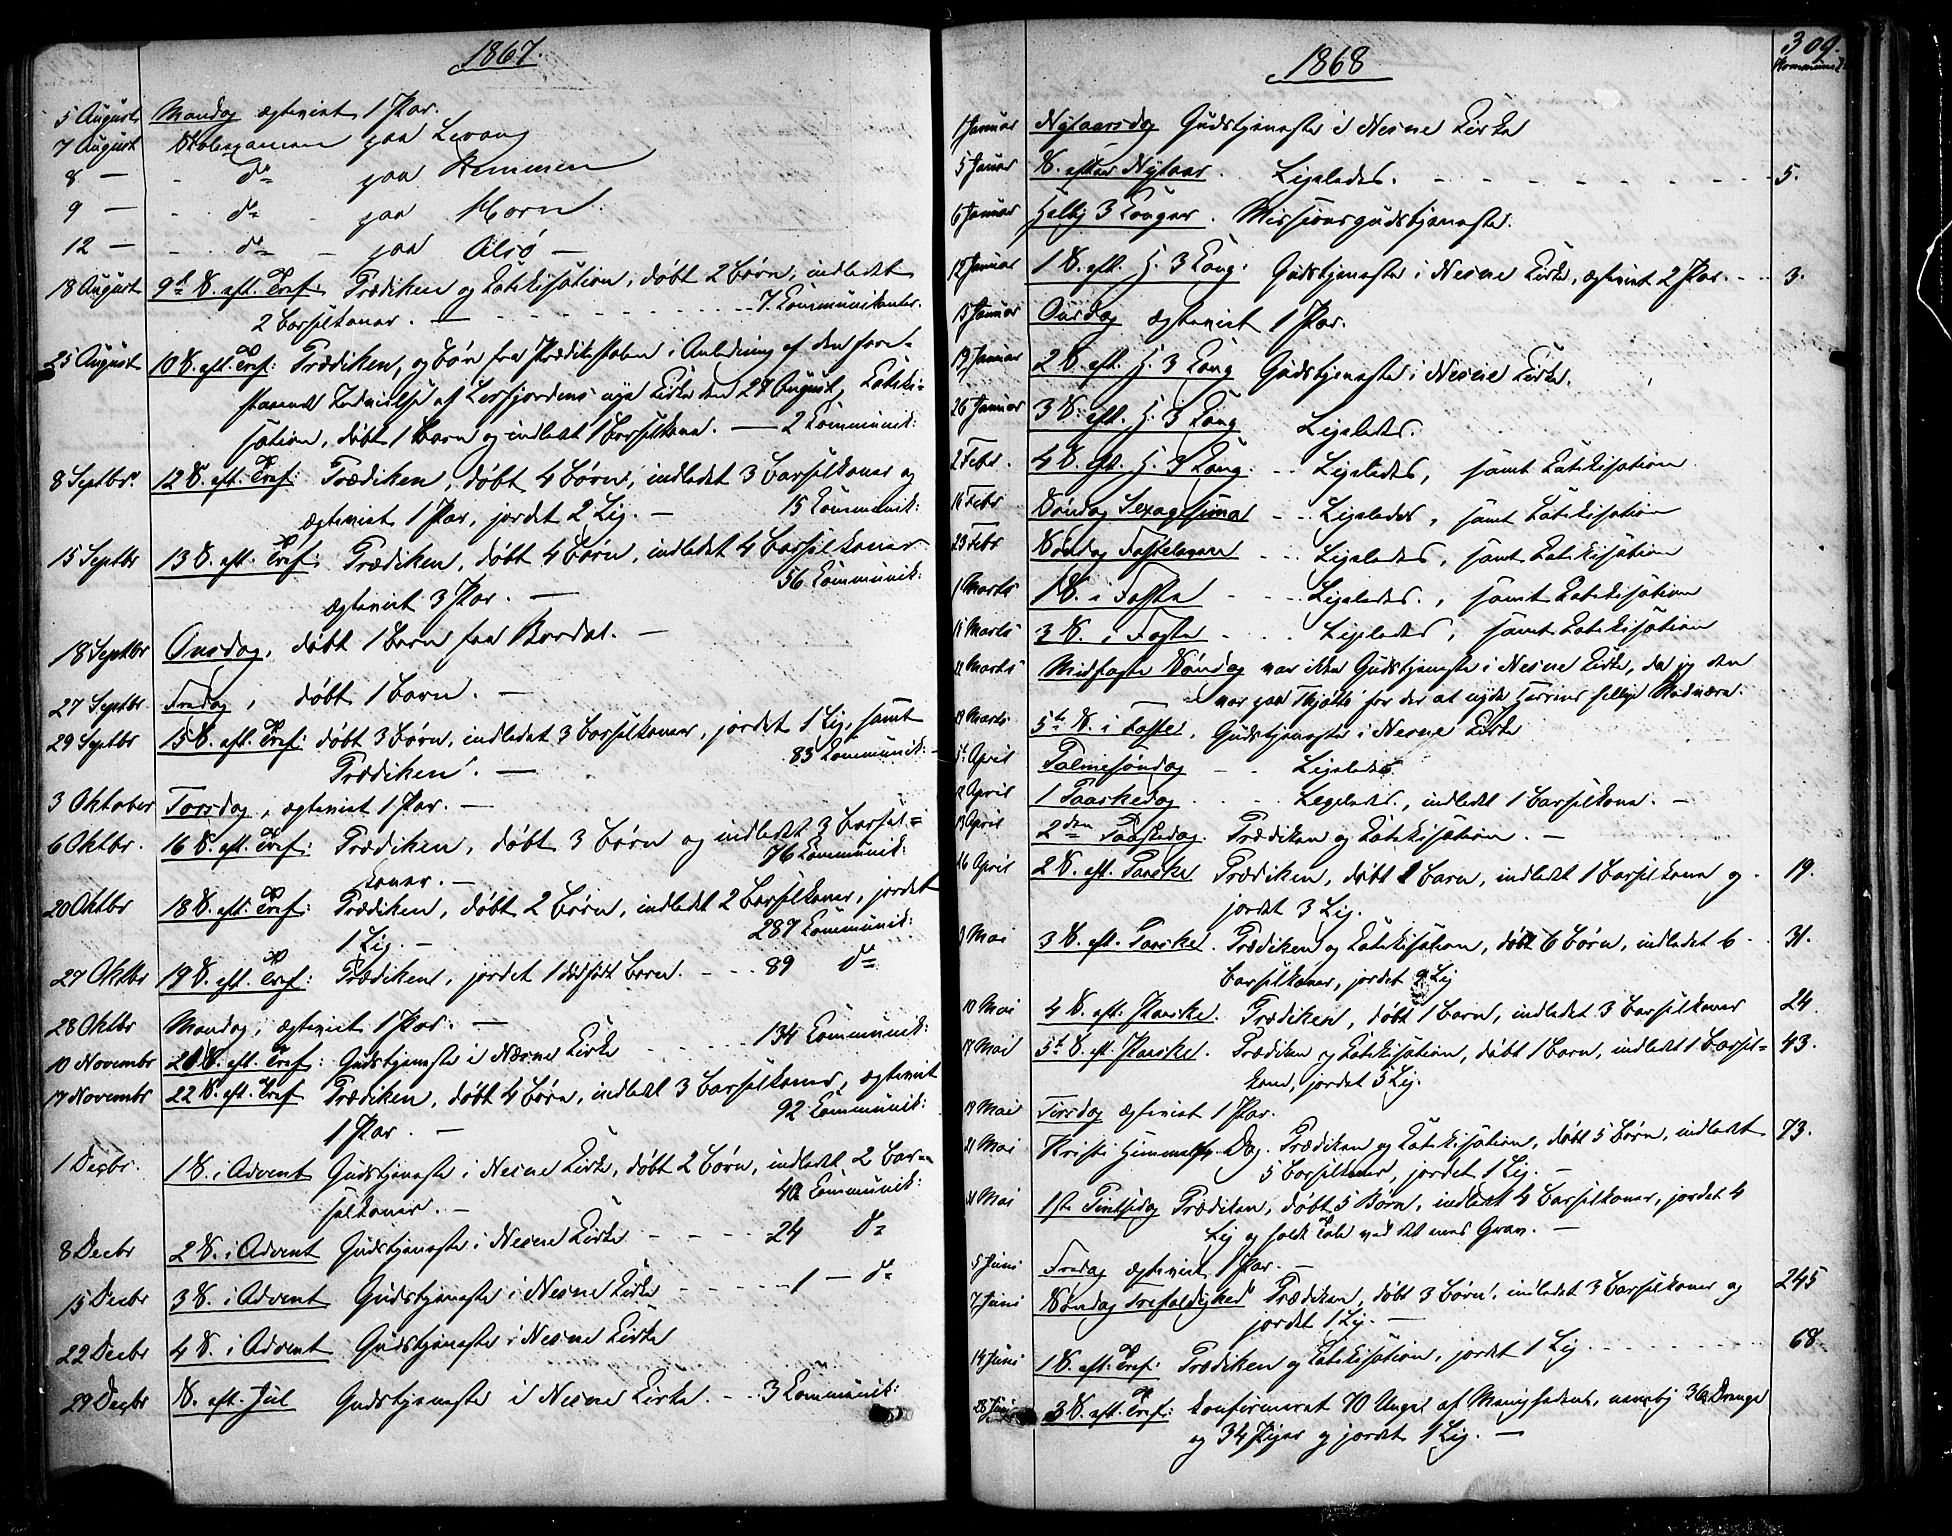 1867.
5 August Mandag ægteviet 1 Par.
7 August Skoleexamen paa Levang
8 — - do paa Hemmen
9 — - do - paa Horn
12 — - do - paa Alsø —
18 August 9de S. eft. Tref: Prædiken og Katekisation, døbt 2 Børn, indledet
2 Barselkoner. — 7 Kommunikanter.
25 August 10 S. eft. Tref: Prædiken, og Bøn fra Prædikestolen i Anledning af den fore-
staaende Indvielse af Leirfjordens nye Kirke den 28 August, Kateki-
sation, døbt 1 Barn og indledt 1 Barselkone. — 2 Kommunik:
8 Septbr. 12 S. eft. Tref: Prædiken, døbt 4 Børn, indledet 3 Barselkoner og
ægteviet 1 Par, jordet 2 Lig. — 15 Kommunik:
15 Septbr 13 S. eft. Tref: Prædiken, døbt 4 Børn, indledet 4 Barselkoner
ægteviet 3 Par. — 56 Kommunik:
18 Septbr Onsdag, døbt 1 Barn fra Bardal. —
27 Septbr. Fredag, døbt 1 Barn. —
29 Septbr 15 S. eft. Tref: døbt 3 Børn, indledet 3 Barselkoner, jordet 1 Lig, samt
Prædiken. — 83 Kommunik:
3 Oktober Torsdag, ægteviet 1 Par. —
6 Oktbr. 16 S. eft. Tref: Prædiken, døbt 3 Børn og indledet 3 Barsel-
koner. — 76 Kommunik:
20 Oktbr 18 S. eft. Tref: Prædiken, døbt 2 Børn, indledet 2 Barselkoner, jordet
1 Lig. — 287 Kommunik:
27 Oktbr 19 S. eft. Tref: Prædiken, jordet 1 dødfødt Barn. - - - 89 do
28 Oktbr Mandag, ægteviet 1 Par. —
10 Novembr 21 S. eft. Tref: Gudstjeneste i Nesne Kirke - - - - 134 Kommunik:
17 Novembr 22 S. eft. Tref Prædiken, døbt 4 Børn, indledet 3 Barselkoner, ægteviet
1 Par. — 92 Kommunik:
1 Decbr. 1 S. i Advent Gudstjeneste i Nesne Kirke, døbt 2 Børn, indledet 2 Bar-
selkoner. — 40 Kommunik:
8 Decbr 2 S. i Advent Gudstjeneste i Nesne Kirke - - - - 24 do
15 Decbr 3 S. i Advent Gudstjeneste i Nesne Kirke - - - - 1 — do
22 Decbr 4 S. i Advent Gudstjeneste i Nesne Kirke
29 Decbr S. eft. Jul Gudstjeneste i Nesne Kirke. - - 3 Kommunik:
1868
309.
1 Januar Nytaarsdag Gudstjeneste i Nesne Kirke
5 Januar S. efter Nytaar. Ligeledes. - - - - - - - 5.
6 Januar Hellig 3 Konger. Missionsgudstjeneste.
12 Januar 1 S. eft. H. 3 Kong: Gudstjeneste i Nesne Kirke, ægteviet 2 Par. - - 3.
15 Januar Onsdag ægteviet 1 Par.
19 Januar 2 S. eft. H. 3 Kong Gudstjeneste i Nesne Kirke.
26 Januar 3 S. eft. H. 3 Kong Ligeledes.
2 Febr. 4 S. eft. H. 3 Kong. - - Ligeledes, samt Katekisation.
16 Febr Søndag Sexagesima - - Ligeledes, samt Katekisation
23 Febr Søndag Fastelavn - - Ligeledes, samt Katekisation
1 Marts 1 S. i Faste - - - Ligeledes., samt Katekisation
15 Marts 3 S. i Faste - - - Ligeledes, samt Katekisation
22 Marts Midfaste Søndag var ikke Gudstjeneste i Nesne Kirke, da jeg den
var paa Tjøtta for der at nyde Herrens hellige Nadvere.
29 Marts 5te S. i Faste, Gudstjeneste i Nesne Kirke
5 April Palmesøndag - - Ligeledes.
12 April 1 Paaskedag - - Ligeledes., indledet 1 Barselkone. —
13 April 2den Paaskedag. Prædiken og Katekisation. —
26 April 2 S. eft. Paaske Prædiken, døbt 1 Barn, indledet 1 Barselkone og - 19.
jordet 3 Lig.
3 Mai 3 S. eft. Paaske. Prædiken og Katekisation, døbt 6 Børn, indledet 6 - 31.
Barselkoner, jordet 9 Lig
10 Mai 4 S. eft. Paaske. Prædiken, døbt 1 Barn, indledet 3 Barselkoner 24
17 Mai 5te S. ef. Paaske. Prædiken og Katekisation, døbt 1 Barn, indledet 1 Barsel- 43.
kone, jordet 5 Lig.
19 Mai Tirsdag ægteviet 1 Par.
21 Mai Kristi Himmelf. Dag. Prædiken og Katekisation, døbt 5 Børn, indledet 73.
5 Barselkoner, jordet 1 Lig. —
31 Mai 1ste Pintsedag Prædiken, døbt 5 Børn, indledet 4 Barselkoner, jordet 4
Lig og holdt Tale ved det enes Grav. —
5 Juni Fredag ægteviet 1 Par. —
7 Juni Søndag Trefoldighed Prædiken, døbt 3 Børn, indledet 3 Barselkoner og 245
jordet 1 Lig. —
14 Juni 1 S. eft. Tref: Prædiken og Katekisation, jordet 1 Lig - - - - 68
28 Juni 3 S. eft. Tref: Konfirmeret 70 Unge af Menigheden, nemlig 36 Drenge
og 34 Piger og jordet 1 Lig. —